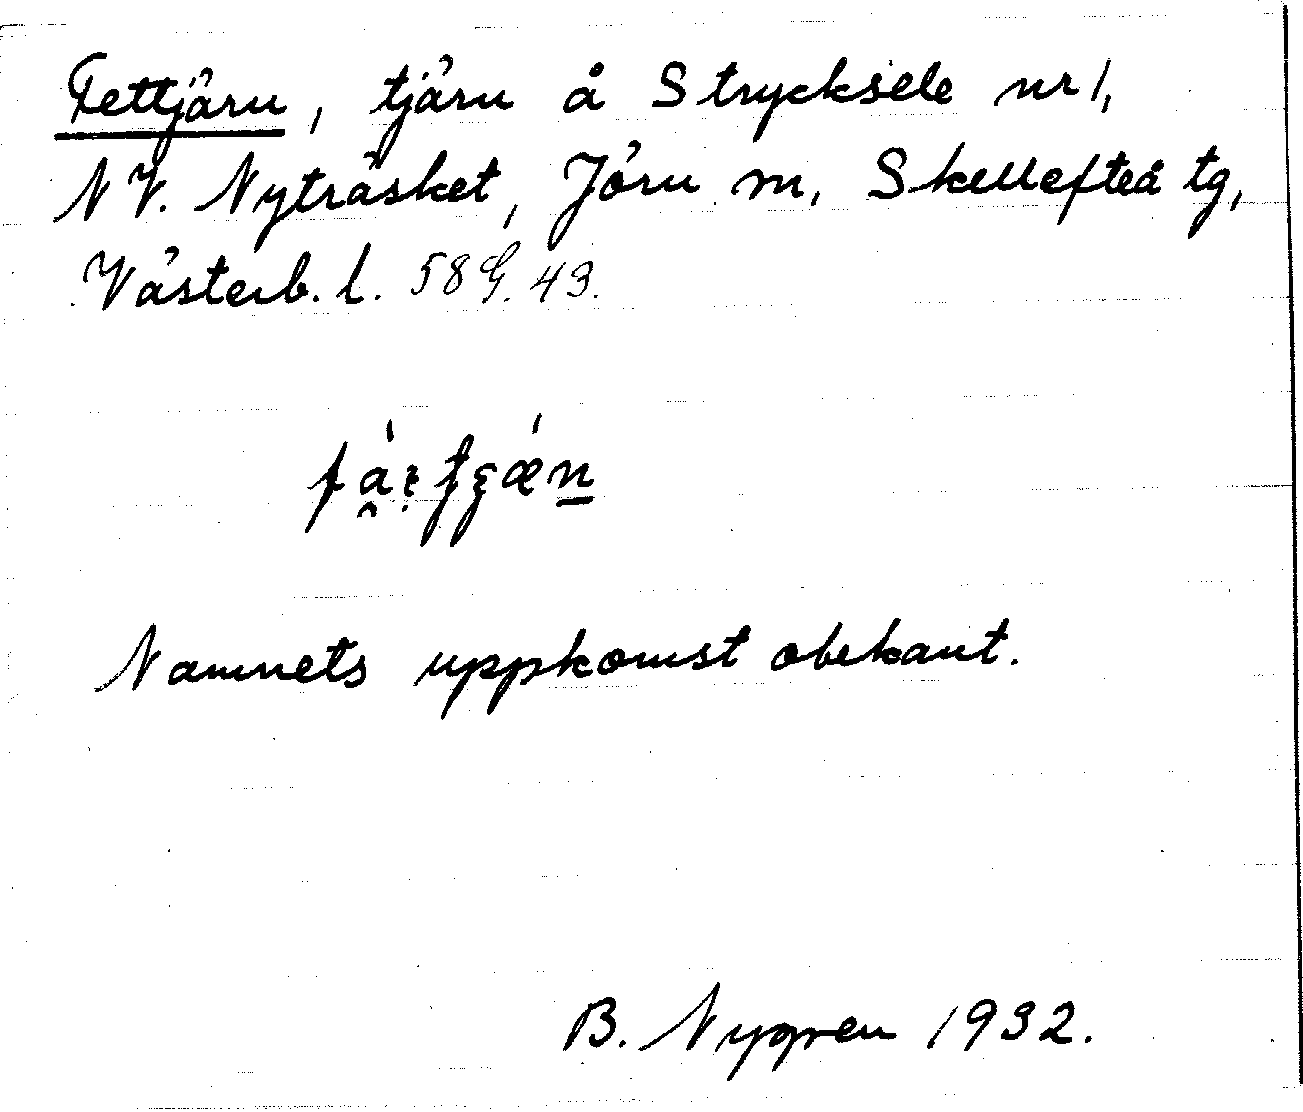 Fettjärn, tjärn å Strycksele nr 1,
NV. Nyträsket, Jörn sn, Skellefteå tg,
Västerb. l. 58 G. 43.
Namnets uppkomst obekant.
B. Nygren 1932.